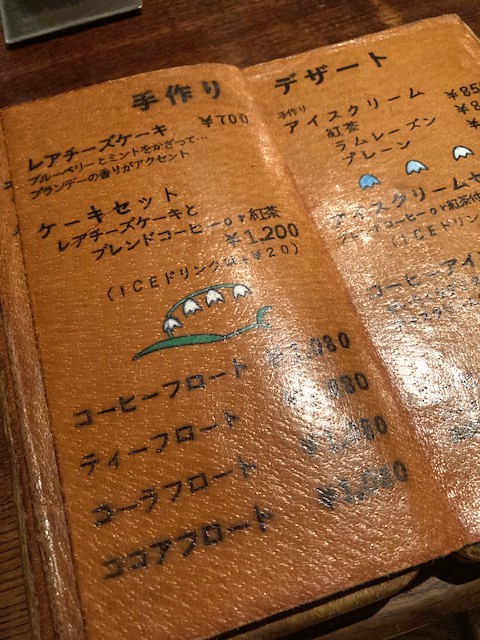 手作り
レアチーズケーキ ¥700
ブルーベリーとミントをかざって…
ブランデーの香りがアクセント
ケーキセット
レアチーズケーキと
ブレンドコーヒーor紅茶
¥1,200
(ICEドリンクは+¥20)
コーヒーフロート ¥1,080
ティーフロート 080
コーラフロート ¥1,080
ココアフロート ¥1,080
デザート
手作り
アイスクリーム
紅茶
ラムレーズン
プレーン
アイスクリームセ
ブレンドコーヒーor紅茶付
(ICEドリン
コーヒーアイ